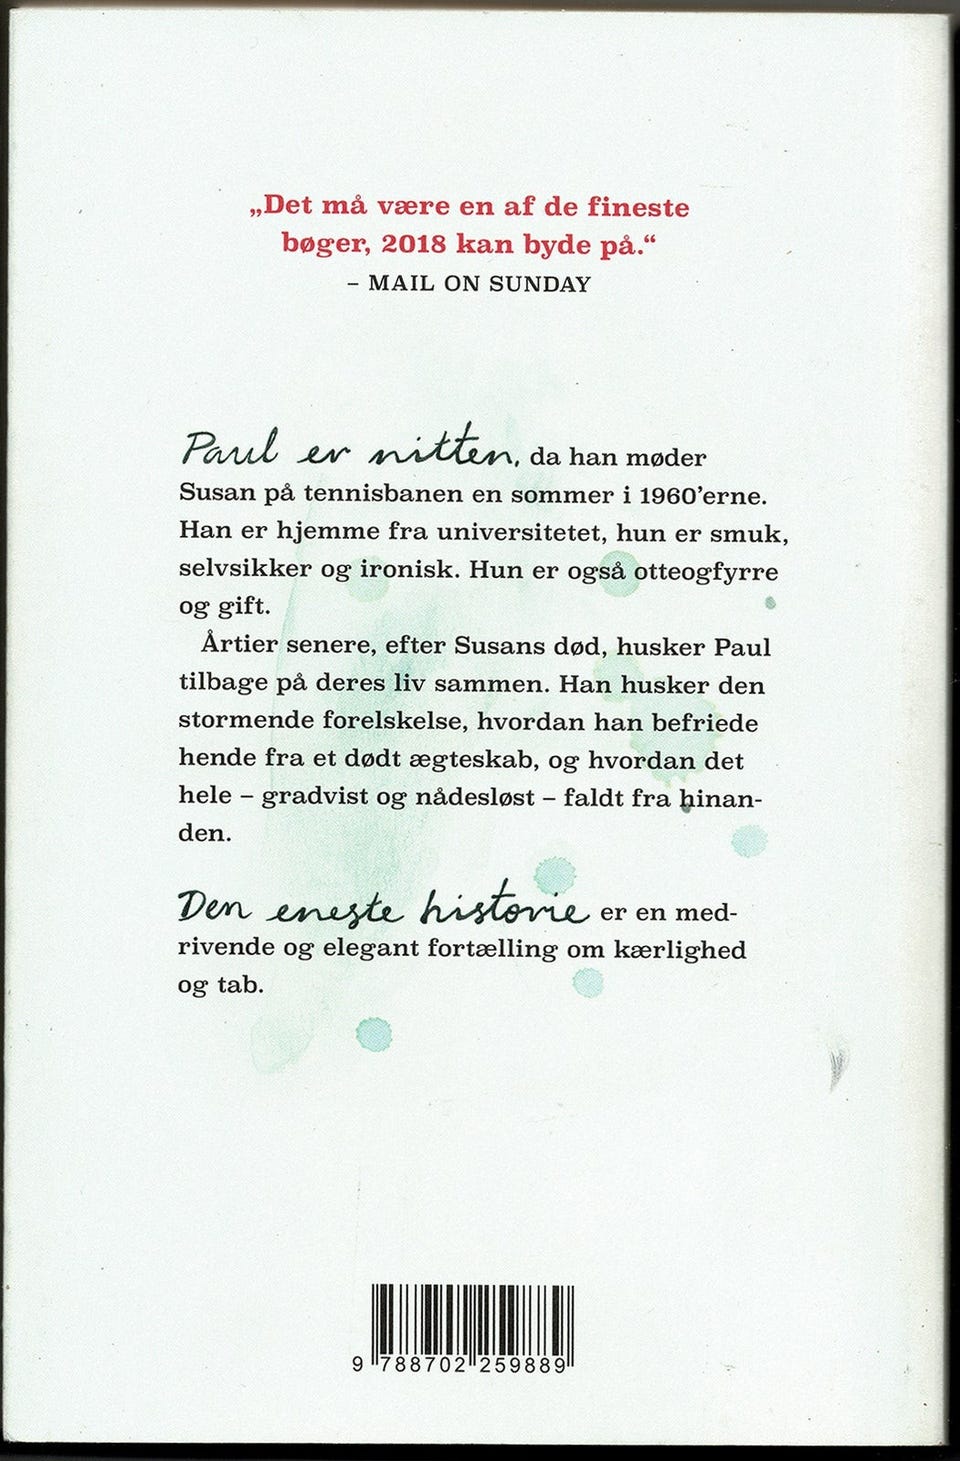 „Det må være en af de fineste
bøger, 2018 kan byde på.“
– MAIL ON SUNDAY
Paul er nitten, da han møder
Susan på tennisbanen en sommer i 1960’erne.
Han er hjemme fra universitetet, hun er smuk,
selvsikker og ironisk. Hun er også otteogfyrre
og gift.
Årtier senere, efter Susans død, husker Paul
tilbage på deres liv sammen. Han husker den
stormende forelskelse, hvordan han befriede
hende fra et dødt ægteskab, og hvordan det
hele – gradvist og nådesløst – faldt fra hinan-
den.
Den eneste historie er en med-
rivende og elegant fortælling om kærlighed
og tab.
9 788702 259889